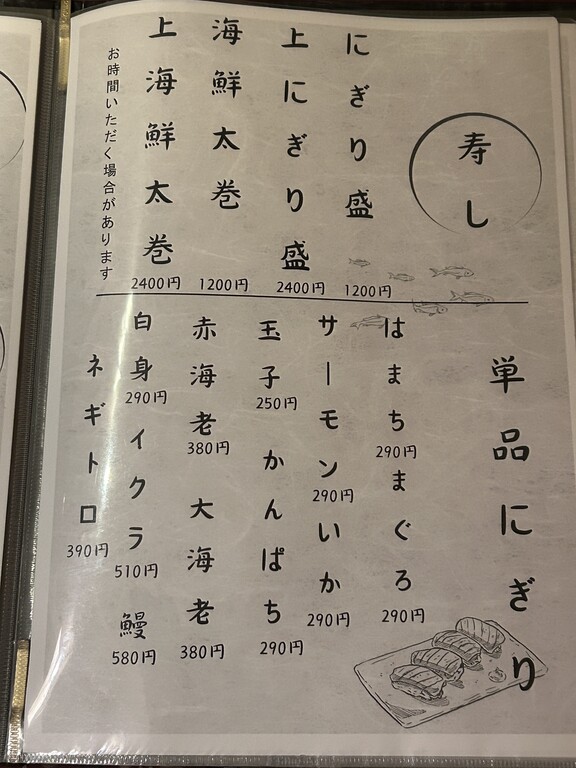 寿し
にぎり盛
1200円
上にぎり盛
2400円
海鮮太巻
1200円
上海鮮太巻
2400円
お時間いただく場合があります
単品にぎり
はまち
290円
まぐろ
290円
サーモン
290円
いか
290円
玉子
250円
かんぱち
290円
赤海老
380円
大海老
380円
白身
290円
イクラ
510円
鰻
580円
ネギトロ
390円